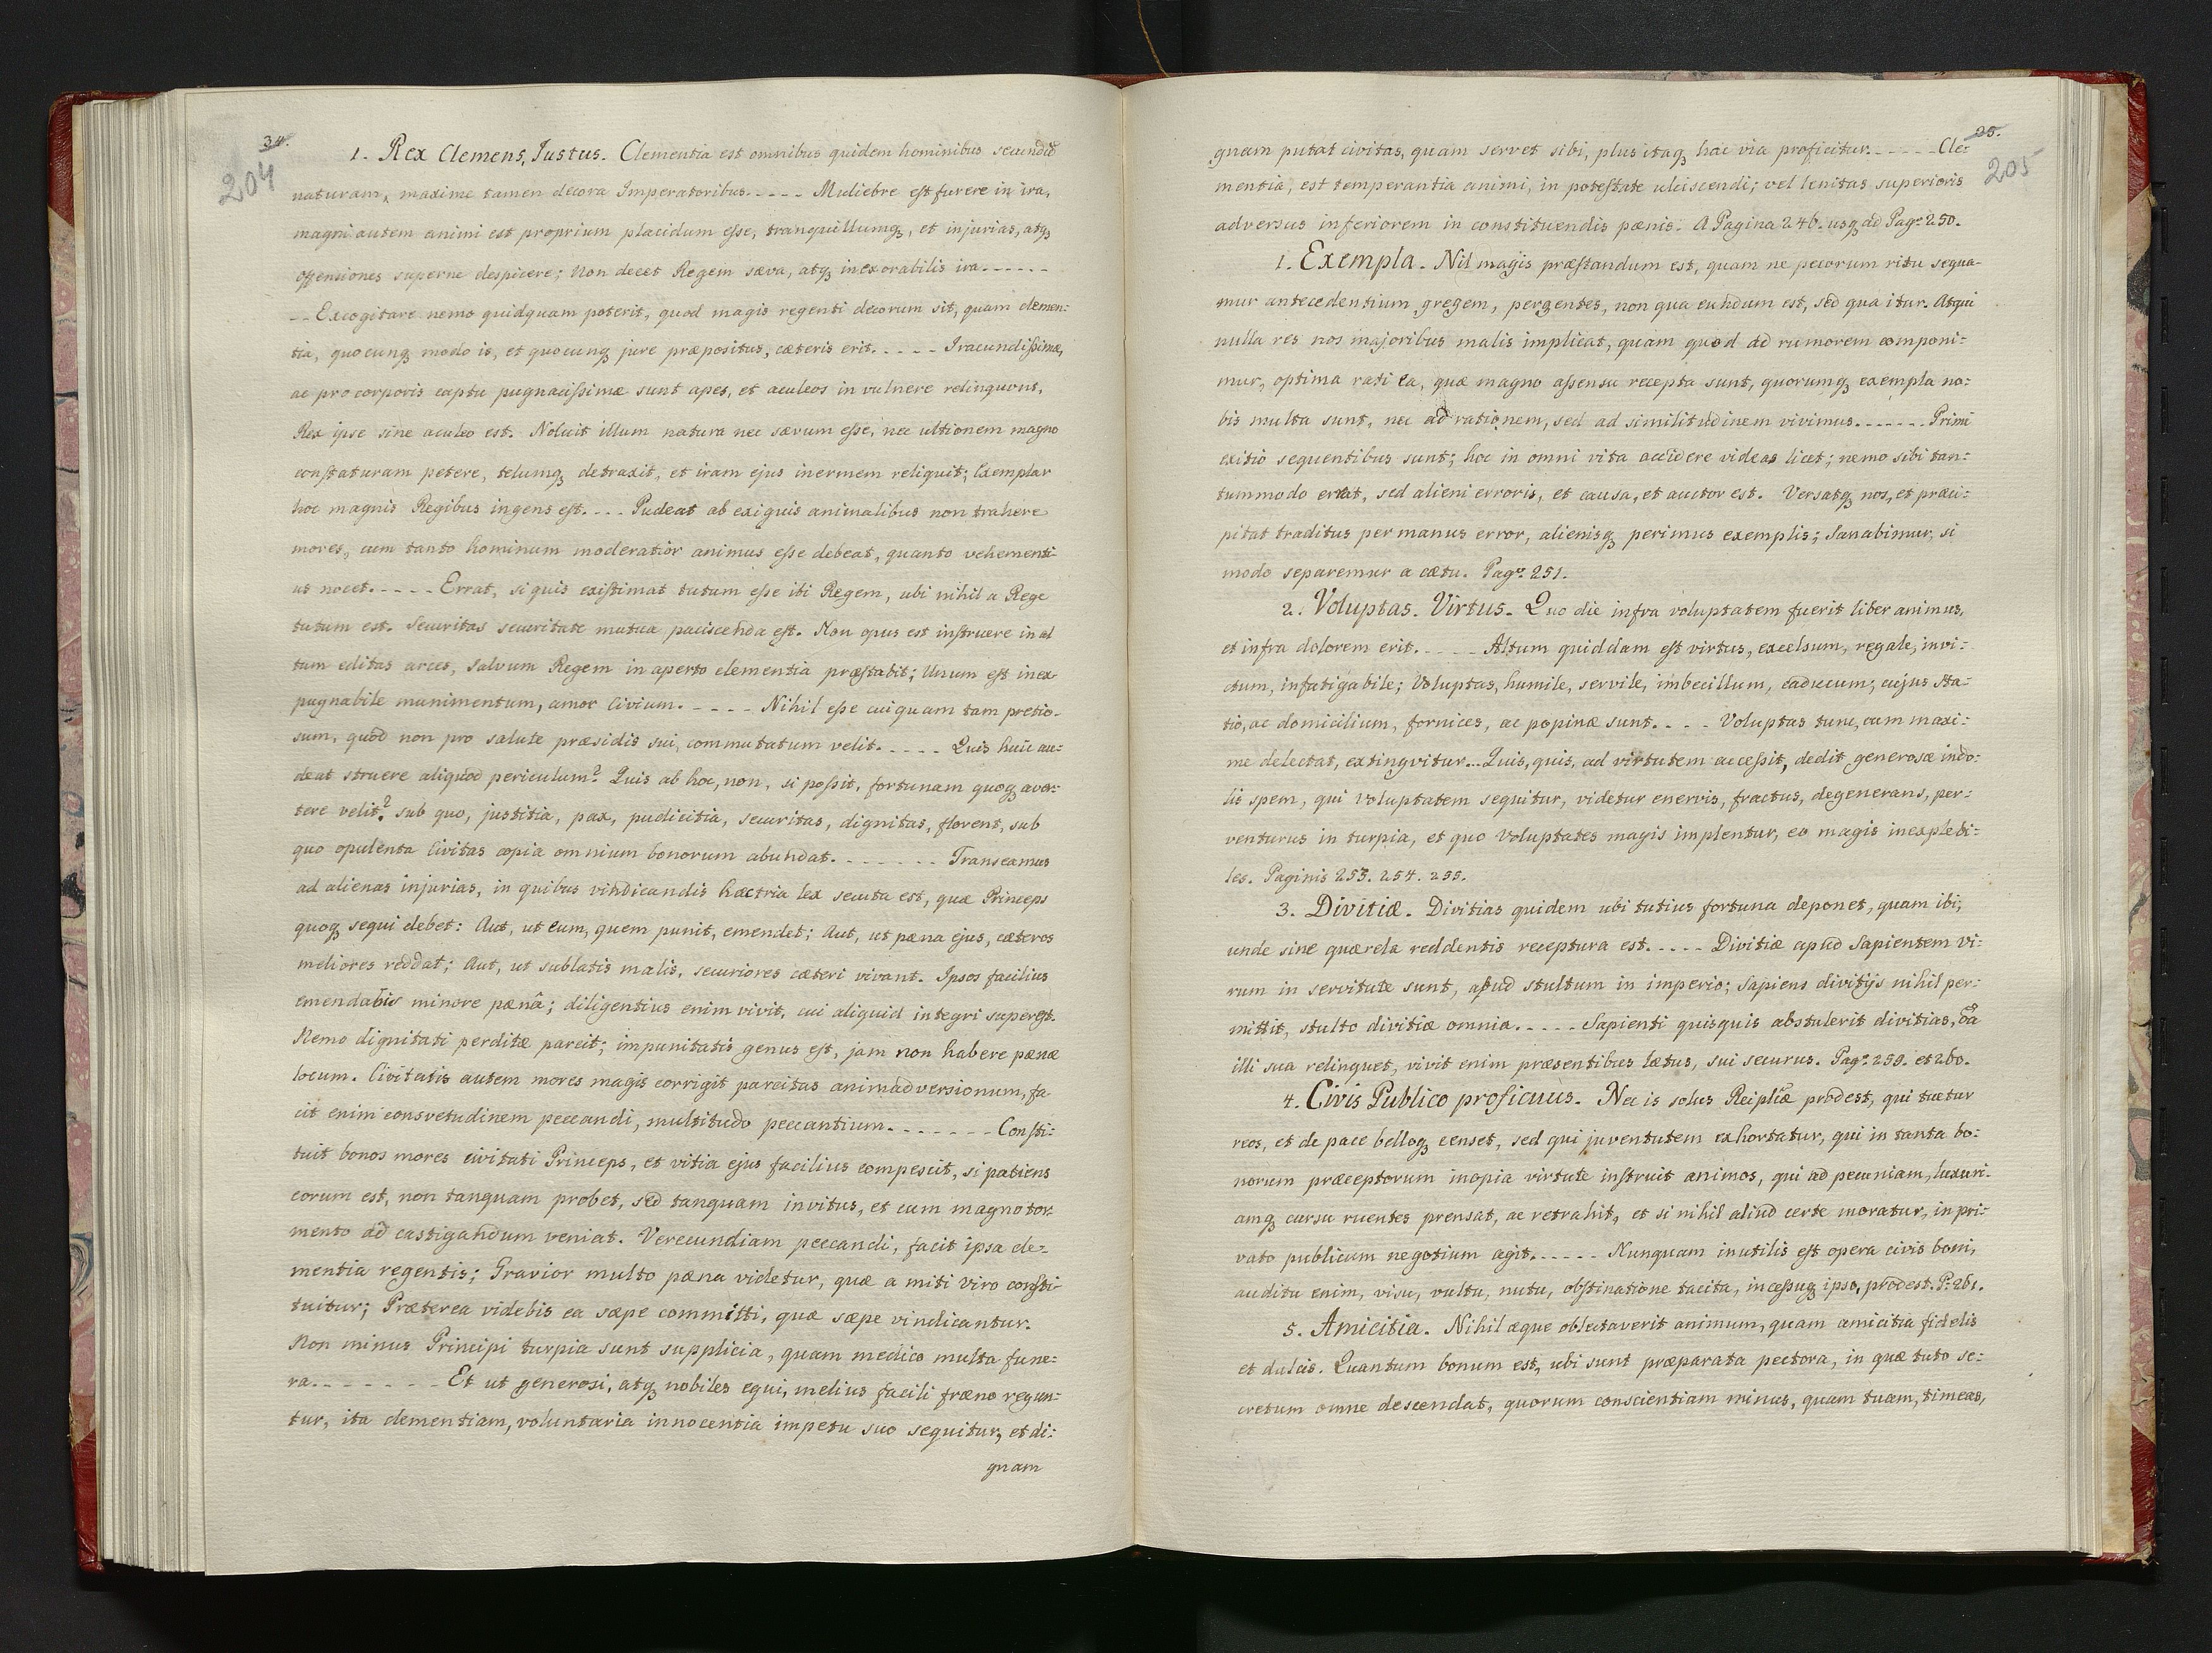 34.
204
1. Rex Clemens, Justus. Clementia est omnibus quidem hominibus secundũ
naturam, maxime tamen decora Imperatoribus. - - - - Muliebre est furere in ira,
magni autem animi est proprium placidum esse, tranquillumq, et injurias, atq
offensiones superne despicere; Non decet Regem sæva, atq inexorabilis ira. - - - - -
- - Excogitare nemo quidquam poterit, quod magis regenti decorum sit, quam clemen:
tia, quocunq modo is, et quocunq jure præpositus, cæteris erit. - - - - Iracundissimæ,
ac pro corporis captu pugnacissimæ sunt apes, et aculeos in vulnere relinquunt,
Rex ipse sine aculeo est. Noluit illum natura nec sævum esse, nec ultionem magno
constaturam petere, telumq detraxit, et iram ejus inermem reliquit; Exemplar
hoc magnis Regibus ingens est. - - - Pudeat ab exiguis animalibus non trahere
mores, cum tanto hominum moderatior animus esse debeat, quanto vehementi-
us nocet. - - - - Errat, si quis existimat tutum esse ibi Regem, ubi nihil a Rege
tutum est. Securitas securitate mutua paciscenda est. Non opus est instruere in al
tum editas arces, salvum Regem in aperto clementia præstabit; Unum est inex
pugnabile munimentum, amor Civium. - - - - Nihil esse cuiquam tam pretio-
sum, quod non pro salute præsidis sui, commutatum velit. - - - - Quis huic au:
deat struere aliquod periculum? Quis ab hoc, non, si possit, fortunam quoq aver:
tere velit? sub quo, justitia, pax, pudicitia, securitas, dignitas, florent, sub
quo opulenta Civitas copia omnium bonorum abundat. - - - - - - Transeamus
ad alienas injurias, in quibus vindicandis hæc tria lex secuta est, quæ Princeps
quoq sequi debet: Aut, ut eum, quem punit, emendet; Aut, ut pæna ejus, cæteros
meliores reddat; Aut, ut sublatis malis, securiores cæteri vivant. Ipsos facilius
emendabis minore pænâ; diligentius enim vivit, cui aliquid integri superest.
Nemo dignitati perditæ parcit; impunitatis genus est, jam non habere pænæ
locum. Civitatis autem mores magis corrigit parcitas animadversionum, fa
cit enim consvetudinem peccandi, multitudo peccantium. - - - - - - - Consti:
tuit bonos mores civitati Princeps, et vitia ejus facilius compescit, si patiens
eorum est, non tanquam probet, sed tanquam invitus, et cum magno tor.
mento ad castigandum veniat. Verecundiam peccandi, facit ipsa cle-
mentia regentis; Gravior multo pæna videtur, quæ a miti viro consti
tuitur; Præterea videbis ea sæpe committi, quæ sæpe vindicantur.
Non minus Principi turpia sunt supplicia, quam medico multa fune:
ra. - - - - - - - Et ut generosi, atq nobiles equi, melius facili fræno regun:
tur, ita clementiam, voluntaria innocentia impetu suo sequitur, et di:
gnam
35.
205
gnam putat civitas, quam servet sibi, plus itaq hac via proficitur. - - - - - Cle:
mentia, est temperantia animi, in potestate ulciscendi; vel lenitas superioris
adversus inferiorem in constituendis pænis. A Pagina 246. usq ad Pag: 250.
1. Exempla. Nil magis præstandum est, quam ne pecorum ritu sequa-
mur antecedentium gregem, pergentes, non qua eundum est, sed qua itur. Atqui
nulla res nos majoribus malis implicat, quam quod ad rumorem componi:
mur, optima rati ea, quæ magno assensu recepta sunt, quorumq exempla no:
bis multa sunt, nec ad rationem, sed ad similitudinem vivimus. - - - - - - Primi
exitio sequentibus sunt; hoc in omni vita accidere videas licet; nemo sibi tan:
tummodo errat, sed alieni erroris, et causa, et auctor est. Versatq nos, et præci:
pitat traditus per manus error, alienisq perimus exemplis; Sanabimur, si
modo separemur a cætu. Pag: 251.
2. Voluptas. Virtus. Quo die infra voluptatem fuerit liber animus,
et infra dolorem erit. - - - - Altum quiddam est virtus, excelsum, regale, invi:
ctum, infatigabile; Voluptas, humile, servile, imbecillum, caducum; cujus sta:
tio, ac domicilium, fornices, ac popinæ sunt. - - - Voluptas tunc, cum maxi:
me delectat, extingvitur... Quis, quis, ad virtutem accessit, dedit generosæ indo:
lis spem, qui Voluptatem sequitur, videtur enervis, fractus, degenerans, per:
venturus in turpia, et quo Voluptates magis implentur, eo magis inexplebi:
les. Paginis 253. 254. 255.
3. Divitiæ. Divitias quidem ubi tutius fortuna deponet, quam ibi;
unde sine quærela reddentis receptura est. - - - - Divitiæ apud Sapientem Vi:
rum in servitute sunt, apud stultum in imperio; Sapiens divitijs nihil per:
mittit, stulto divitiæ omnia. - - - - Sapienti quisquis abstulerit divitias, oa
illi sua relinquet, vivit enim præsentibus lætus, sui securus. Pag: 259. et 260.
4. Civis Publico proficuus. Nec is solus Reipliæ prodest, qui tuetur
reos, et de pace belloq censet, sed qui juventutem exhortatur, qui in tanta bo:
norum præceptorum inopia virtute instruit animos, qui ad pecuniam, luxuri.
amq cursu ruentes prensat, ac retrahit, et si nihil aliud certe moratur, in pri:
vato publicum negotium agit. - - - - - Nunquam inutilis est opera civis boni,
auditu enim, visu, vultu, nutu, obstinatione tacita, incessuq ipso, prodest. P: 261.
5. Amicitia. Nihil æque oblectaverit animum, quam amicitia fidelis
et dulcis. Quantum bonum est, ubi sunt præparata pectora, in quæ tuto se:
cretum omne descendat, quorum conscientiam minus, quam tuam, timeas,